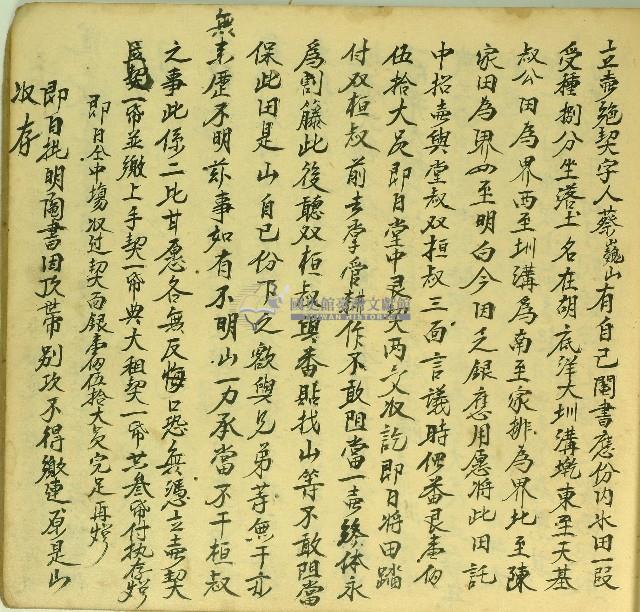 立賣絕契字人蔡巍山有自己鬮書應份內水田一段
受種捌分坐落土名在胡底洋大圳溝墘東至天基
叔公田為界西至圳溝為南至家排為界北至陳
家田為界四至明白今因乏銀應用愿將此田託
中招賣與堂叔双桓叔三面言議時價番艮壹佰
伍拾大員即日堂中艮契兩交收訖即日將田踏
付双桓叔前去掌管耕作不敢阻當一賣終休永
為割藤此後聽双桓叔與番貼找山等不敢阻當
保此田是山自己份下之額與兄弟等無干亦
無來歷不明茲事如有不明山一力承當不干桓叔
之事此係二比甘愿各無反悔口恐無憑立賣契
契一帋並繳上手契一帋典大租契一帋共叁帋付执存炤
即日仝中塲收过契面銀壹佰伍拾大員完足再炤
即日批明鬮書因頂帶別段不得繳連原是山
收存
國史館臺灣文獻館
TAIWAN HISTORICA